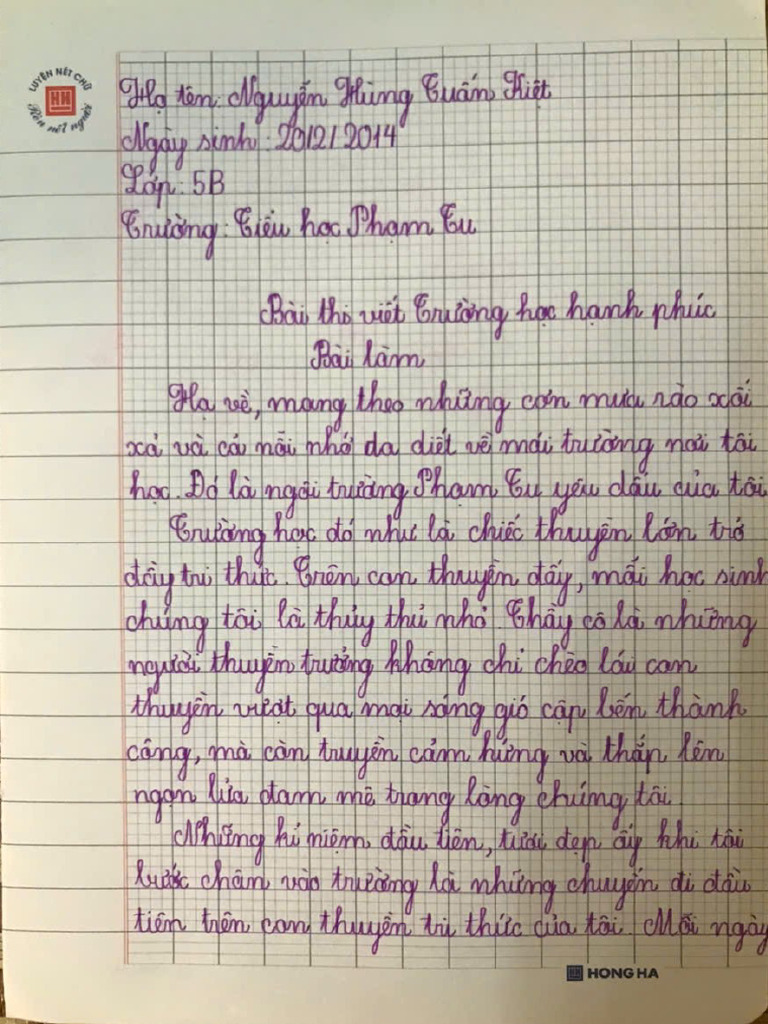 LUYỆN NÉT CHỮ
Rèn nết người
Họ tên: Nguyễn Hùng Tuấn Kiệt
Ngày sinh: 20/2/2014
Lớp: 5B
Trường: Tiểu học Phạm Tu
Bài thi viết Trường học hạnh phúc
Bài làm
Hạ về, mang theo những cơn mưa rào xối
xả và cả nỗi nhớ da diết về mái trường nơi tôi
học. Đó là ngôi trường Phạm Tu yêu dấu của tôi.
Trường học đó như là chiếc thuyền lớn trở
đầy tri thức. Trên con thuyền đấy, mỗi học sinh
chúng tôi là thủy thủ nhỏ. Thầy cô là những
người thuyền trưởng không chỉ chèo lái con
thuyền vượt qua mọi sóng gió cập bến thành
công, mà còn truyền cảm hứng và thắp lên
ngọn lửa đam mê trong lòng chúng tôi.
Những kỉ niệm đầu tiên, tươi đẹp ấy khi tôi
bước chân vào trường là những chuyến đi đầu
tiên trên con thuyền tri thức của tôi. Mỗi ngày
HONG HA